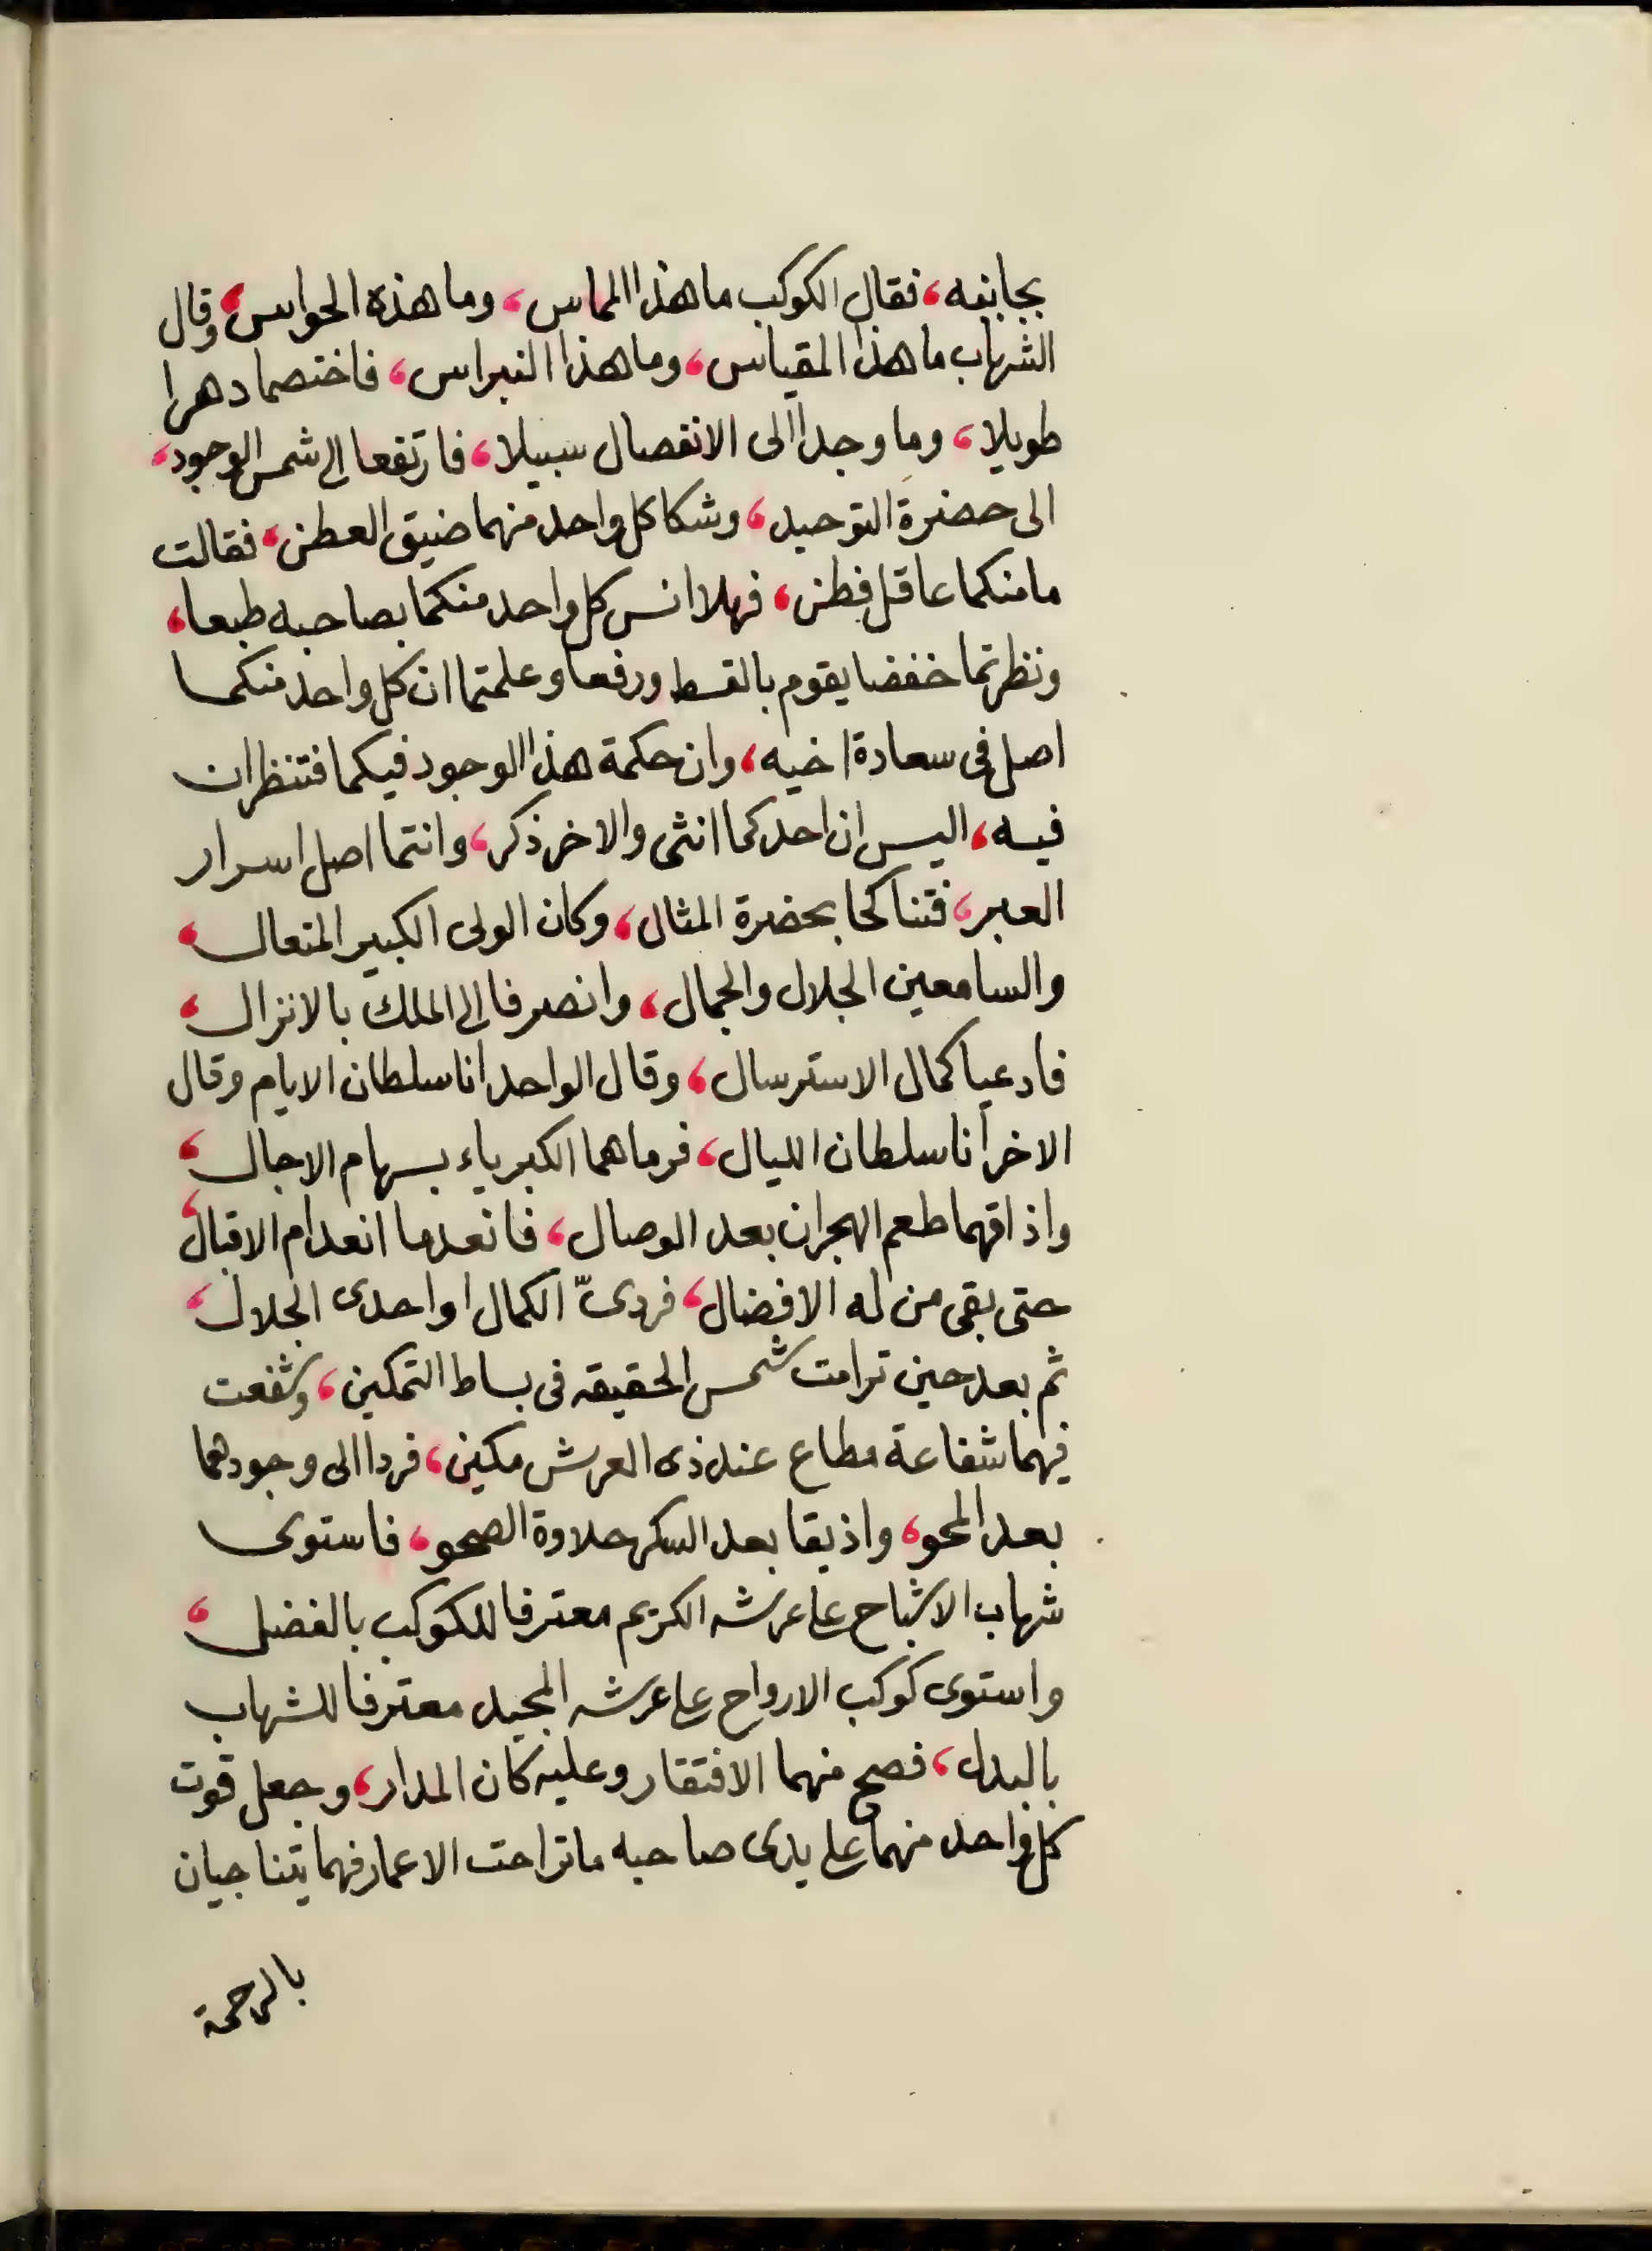 بجانبه، فقال الكوكب ما هذا المماس، وما هذه الحواس، وقال
الشهاب ما هذا المقياس، وما هذا النبراس، فاختصما دهرا
طويلا، وما وجدا الى الانفصال سبيلا، فارتفعا الى شمس الوجود،
الى حضرة التوحيد، وشكا كل واحد منهما ضيق العطن، فقالت
ما منكما عاقل فطن، فهلا انس كل واحد منكما بصاحبه طبعا،
ونظرتما خفضا يقوم بالقسط ورفعا وعلمتما ان كل واحد منكما
اصل فى سعادة اخيه، وان حكمة هذا الوجود فيكما فتنظران
فيه، اليس ان احدكما انثى والاخر ذكر، وانتما اصل اسرار
العبر، فتناكحا بحضرة المثال، وكان الولى الكبير المتعال،
والسامعين الجلال والجمال، وانصرفا الى الملك بالانزال،
فادعيا كمال الاسترسال، وقال الواحد انا سلطان الايام وقال
الاخر أنا سلطان الليال، فرماهما الكبرياء بسهام الاجال،
واذاقهما طعم الهجران بعد الوصال، فانعدما انعدام الاقبال،
حتى بقى من له الافضال، فردىّ الكمال او احدى الجلال،
ثم بعد حين ترامت شمس الحقيقه فى بساط التمكين، وشفعت
فيهما شفاعة مطاع عند ذى العرش مكين، فردا الى وجودهما
بعد المحو، واذيقا بعد السكر حلاوة الصحو، فاستوى
شهاب الاشباح على عرشه الكريم معترفا للكوكب بالفضل،
واستوى كوكب الارواح على عرشه المجيد معترفا للشهاب
بالبدل، فصح منهما الافتقار وعليه كان المدار، وجعل قوت
كل واحد منهما على يدى صاحبه ما تراخت الاعمار فهما يتناجيان
بالرحمة